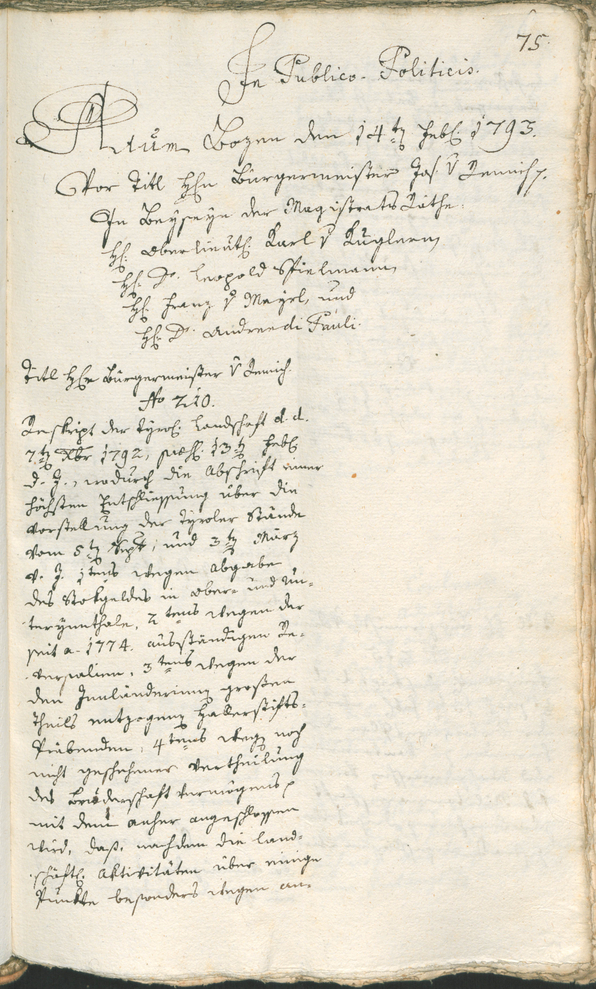 75.
In Publico-Politicis.
Actum Bozen den 14tn Febl: 1793.
Vor Titl Hln Bürgermeister Jos: v Remich.
In Beyseyn der Magistrats Räthe:
Hl: Oberlieuth: Karl v Kuglern
Hl: Dr. Leopold Spielmann
Hl: Franz v Mayrl, und
Hl: Dr. Andree di Pauli.
Titl Hln Bürgermeister v Remich.
No 210.
Reskript der tyrol: Landschaft d. d.
7tn Xbr 1792, präs: 13tn Febl:
d. J., wodurch die Abschrift einer
höchsten Entschliessung über die
Vorstellung der Tyroler Stände
vom 5tn Sept: und 3tn März
v. J. 1tens wegen Abgabe
des Stokgeldes in Ober- und Un-
terynnthale, 2tens wegen der
seit a. 1774. ausständigen Re-
versalien, 3tens wegen der
den Innländerinen großen
theils entzogenen Hallerstifts-
Präbenden, 4tens wegen noch
nicht geschehener Vertheilung
des Bruderschaft Vermögens
mit dem anher angeschlossen
wird, daß, nachdem die land-
schäftl: Aktivitäten über einige
Punkte besonders wegen an-